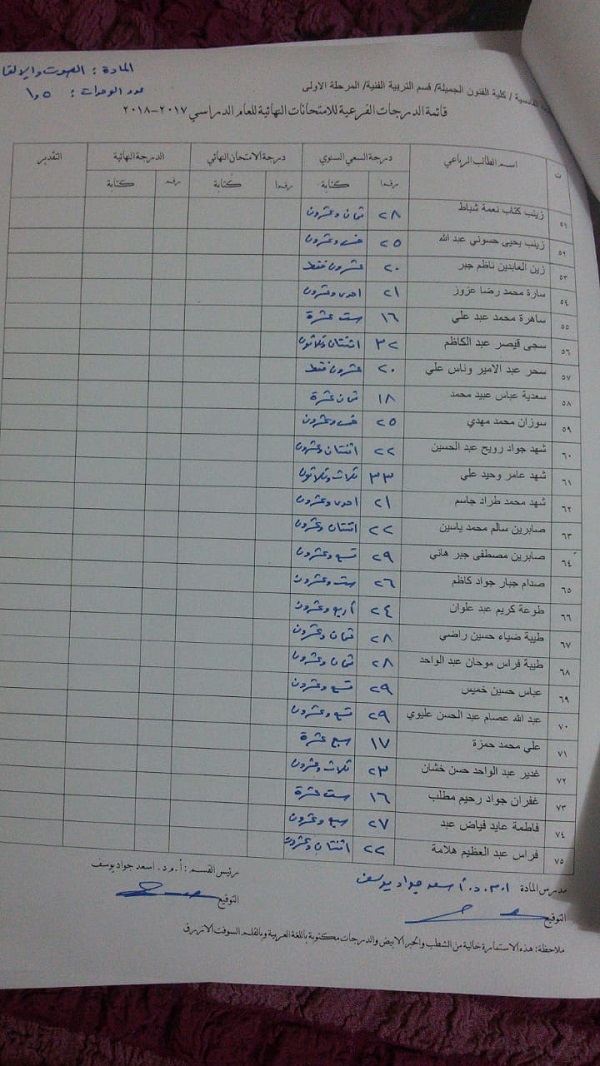 المادة : الصوت والالقا
عدد الوحدات : ١,٥
/ كلية الفنون الجميلة/ قسم التربية الفنية/ المرحلة الاولى
قائمة الدرجات الفرعية للامتحانات النهائية للعام الدراسي ٢٠١٧-٢٠١٨
ت اسم الطالب الرباعي درجة السعي السنوي درجة الامتحان النهائي الدرجة النهائية التقدير
رقما كتابة رقما كتابة رقما كتابة
٥١ زينب كتاب نعمة شباط ٢٨ ثمان وعشرون
٥٢ زينب يحيى حسوني عبد الله ٢٥ خمس وعشرون
٥٣ زين العابدين ناظم جبر ٢٠ عشرون فقط
٥٤ سارة محمد رضا عزوز ٢١ احدى وعشرون
٥٥ ساهرة محمد عبد علي ١٦ ست عشرة
٥٦ سجى قيصر عبد الكاظم ٣٢ اثنتان وثلاثون
٥٧ سحر عبد الامير وناس علي ٢٠ عشرون فقط
٥٨ سعدية عباس عبيد محمد ١٨ ثمان عشرة
٥٩ سوزان محمد مهدي ٢٥ خمس وعشرون
٦٠ شهد جواد رويح عبد الحسين ٢٢ اثنتان وعشرون
٦١ شهد عامر وحيد علي ٣٣ ثلاث وثلاثون
٦٢ شهد محمد طراد جاسم ٢١ احدى وعشرون
٦٣ صابرين سالم محمد ياسين ٢٢ اثنتان وعشرون
٦٤ صابرين مصطفى جبر هاني ٢٩ تسع وعشرون
٦٥ صدام جبار جواد كاظم ٢٦ ست وعشرون
٦٦ طوعة كريم عبد علوان ٢٤ أربع وعشرون
٦٧ طيبة ضياء حسين راضي ٢٨ ثمان وعشرون
٦٨ طيبة فراس موحان عبد الواحد ٢٨ ثمان وعشرون
٦٩ عباس حسين خميس ٢٩ تسع وعشرون
٧٠ عبد الله عصام عبد الحسن عليوي ٢٩ تسع وعشرون
٧١ علي محمد حمزة ١٧ سبع عشرة
٧٢ غدير عبد الواحد حسن خشان ٢٣ ثلاث وعشرون
٧٣ غفران جواد رحيم مطلب ١٦ ست عشرة
٧٤ فاطمة عايد فياض عبد ٢٧ سبع وعشرون
٧٥ فراس عبد العظيم هلامة ٢٢ اثنتان وعشرون
مدرس المادة أ.م.د. اسعد جواد يوسف رئيس القسم : أ.م.د. اسعد جواد يوسف
التوقيع التوقيع
ملاحظة: هذه الاستمارة خالية من الشطب والحبر الابيض والدرجات مكتوبة باللغة العربية وبالقلم السوفت الازرق